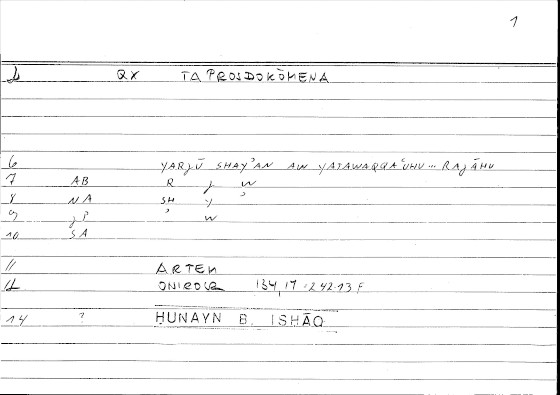 1
2 QX TA PROSDOKŌMENA
6 YARJŪ SHAY'AN AW YATAWAQQA'UHU... RAJĀHU
7 AB R J W
8 NA SH Y '
9 JP ' W
10 SA
11 ARTEM
12 ONIROCR 134,17 : 242.13 F
14 ? ḤUNAYN B. ISḤĀQ